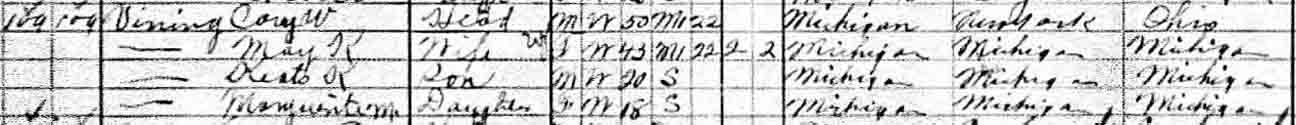 109 109 Vining Cary W Head M W 50 M1 22 Michigan New York Ohio
— May K Wife F W 43 M1 22 2 2 Michigan Michigan Michigan
— K Son M W 20 S Michigan Michigan Michigan
— Marguerite M Daughter F W 18 S Michigan Michigan Michigan